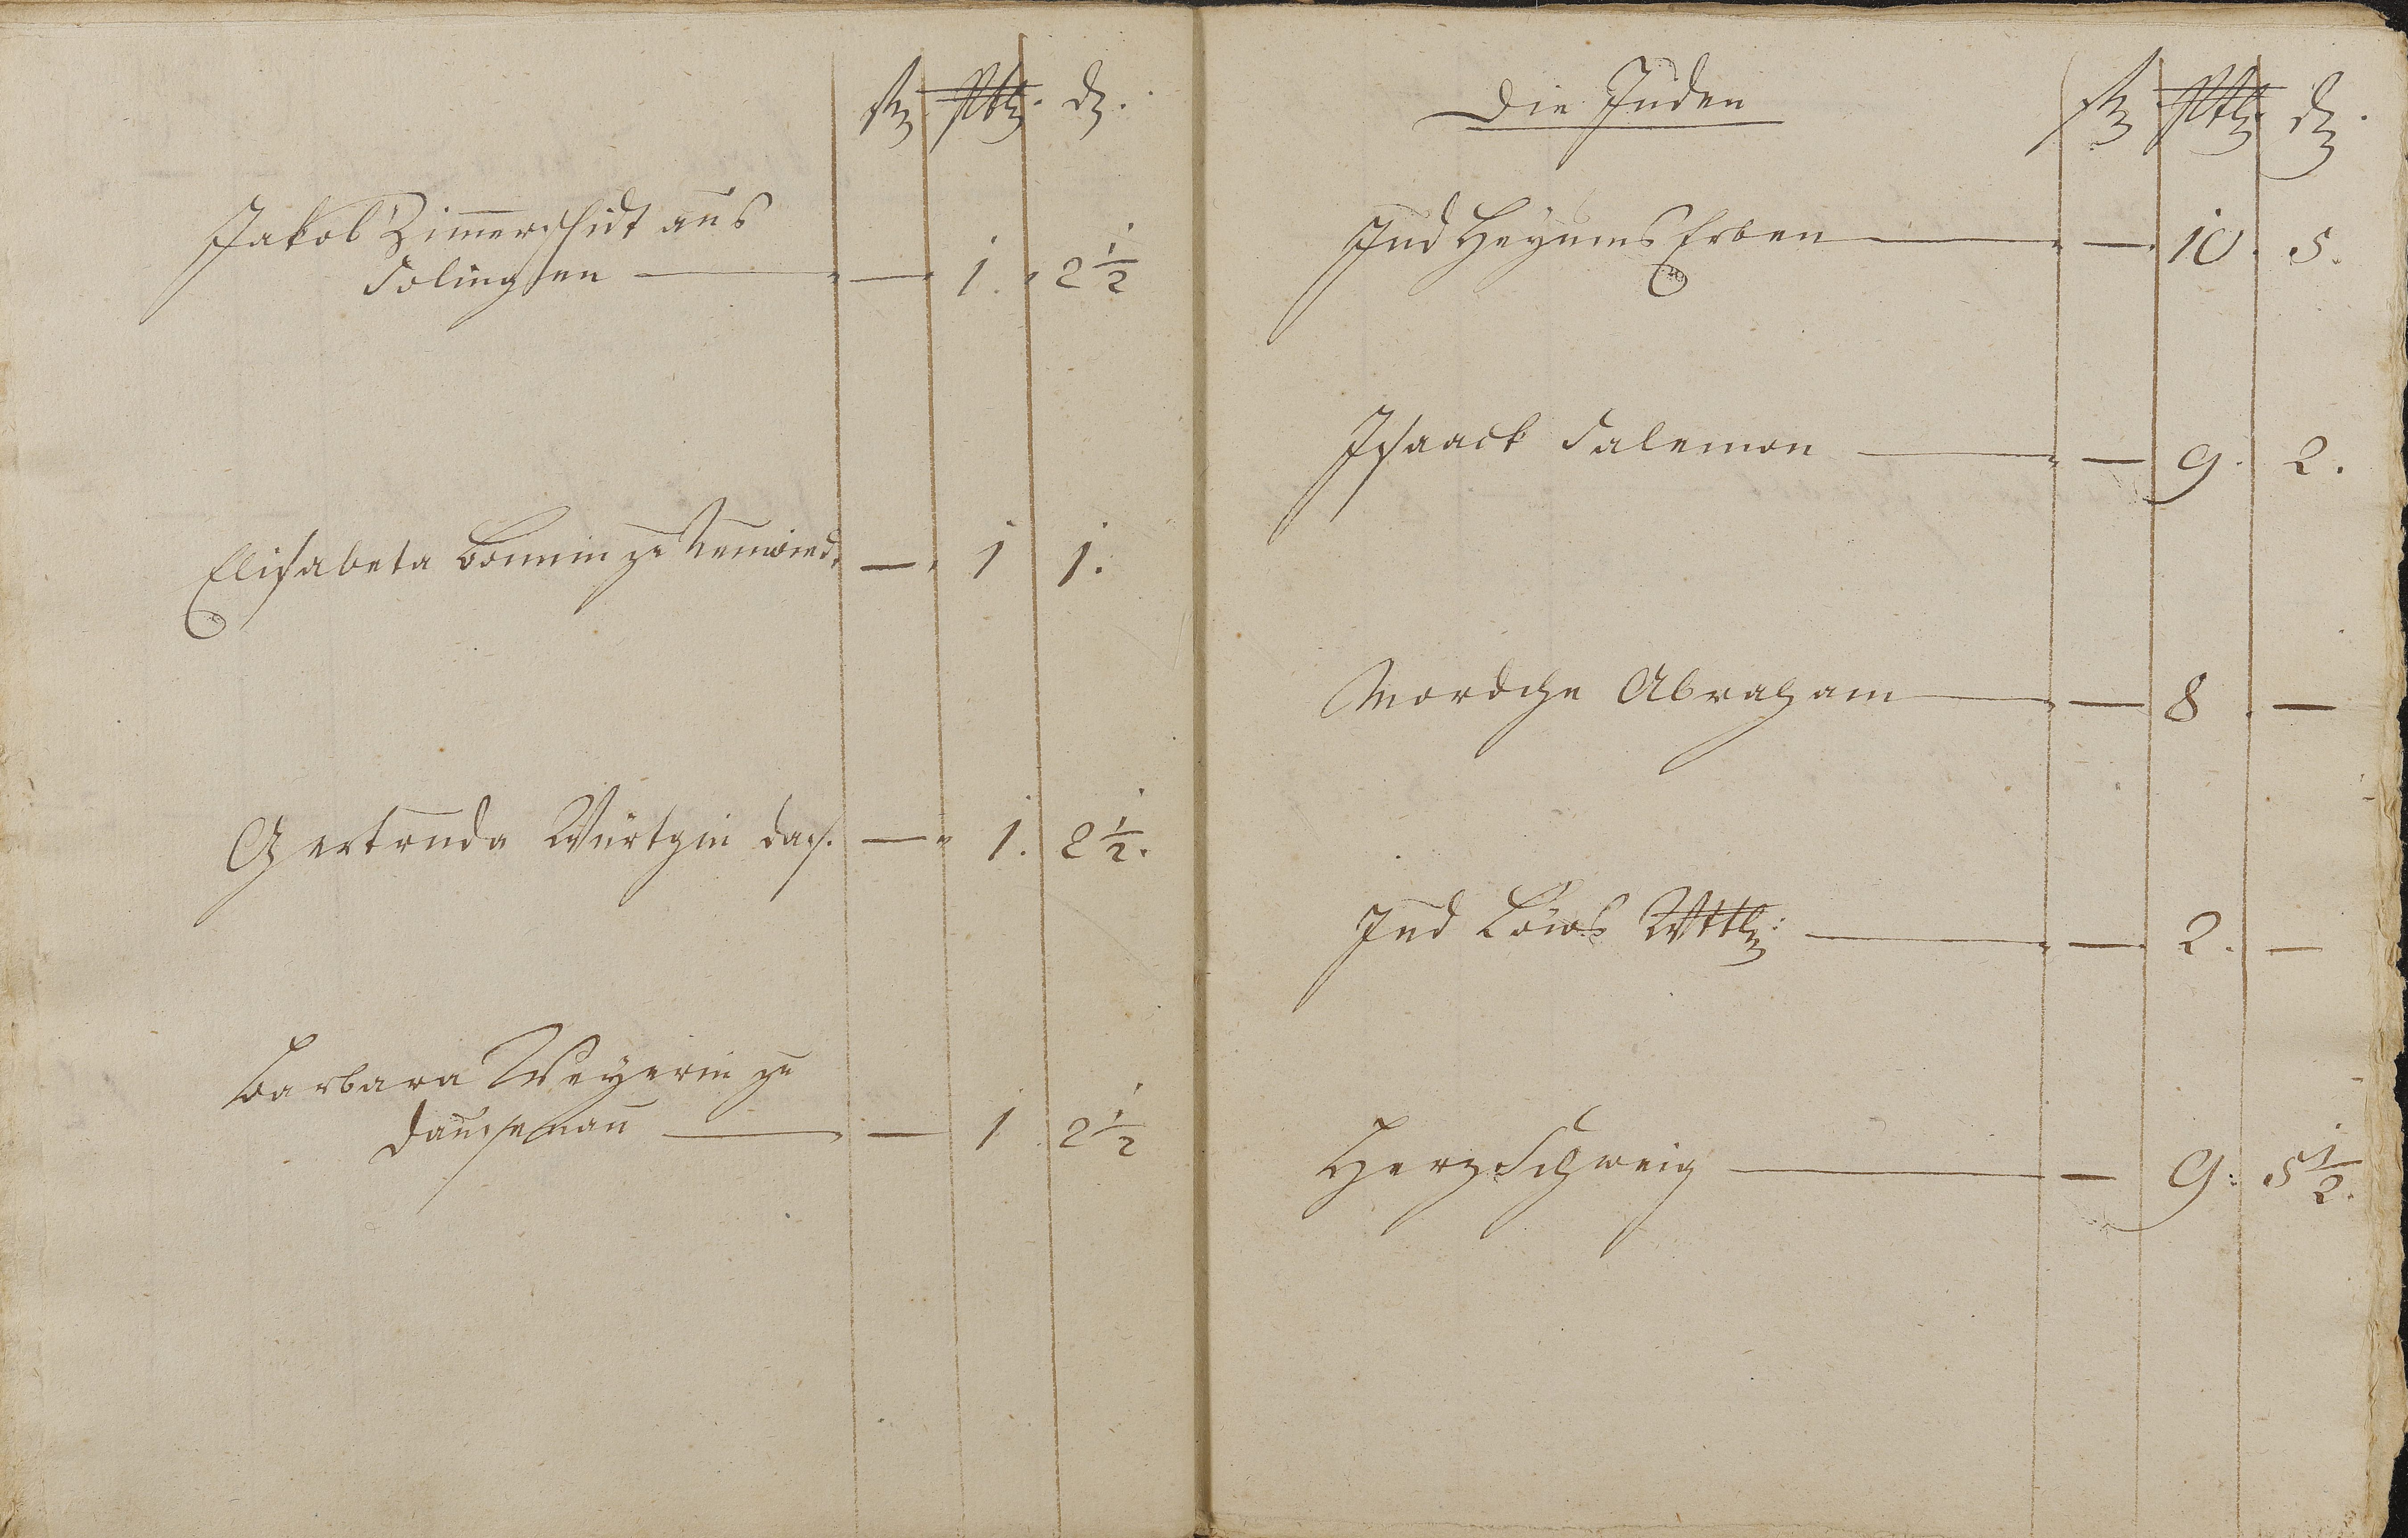 Jakob Zimmerschidt aus
Solingsen — — 1. 2 1/2
Elisabeta Bonnin zu Neuwied. — 1 1.
Gertruda Würtgin das. — 1. 2 1/2.
Barbara Weyerin zu
Dausenau — — 1 2 1/2
Die Juden
Jud Heyums Erben — — 10. 5.
Isaack Salemon — — 9. 2.
Mordche Abraham — — 8 . —
Jud Löws Wttb: — — 2. —
Herz Schweig — — 9. 5 1/2.